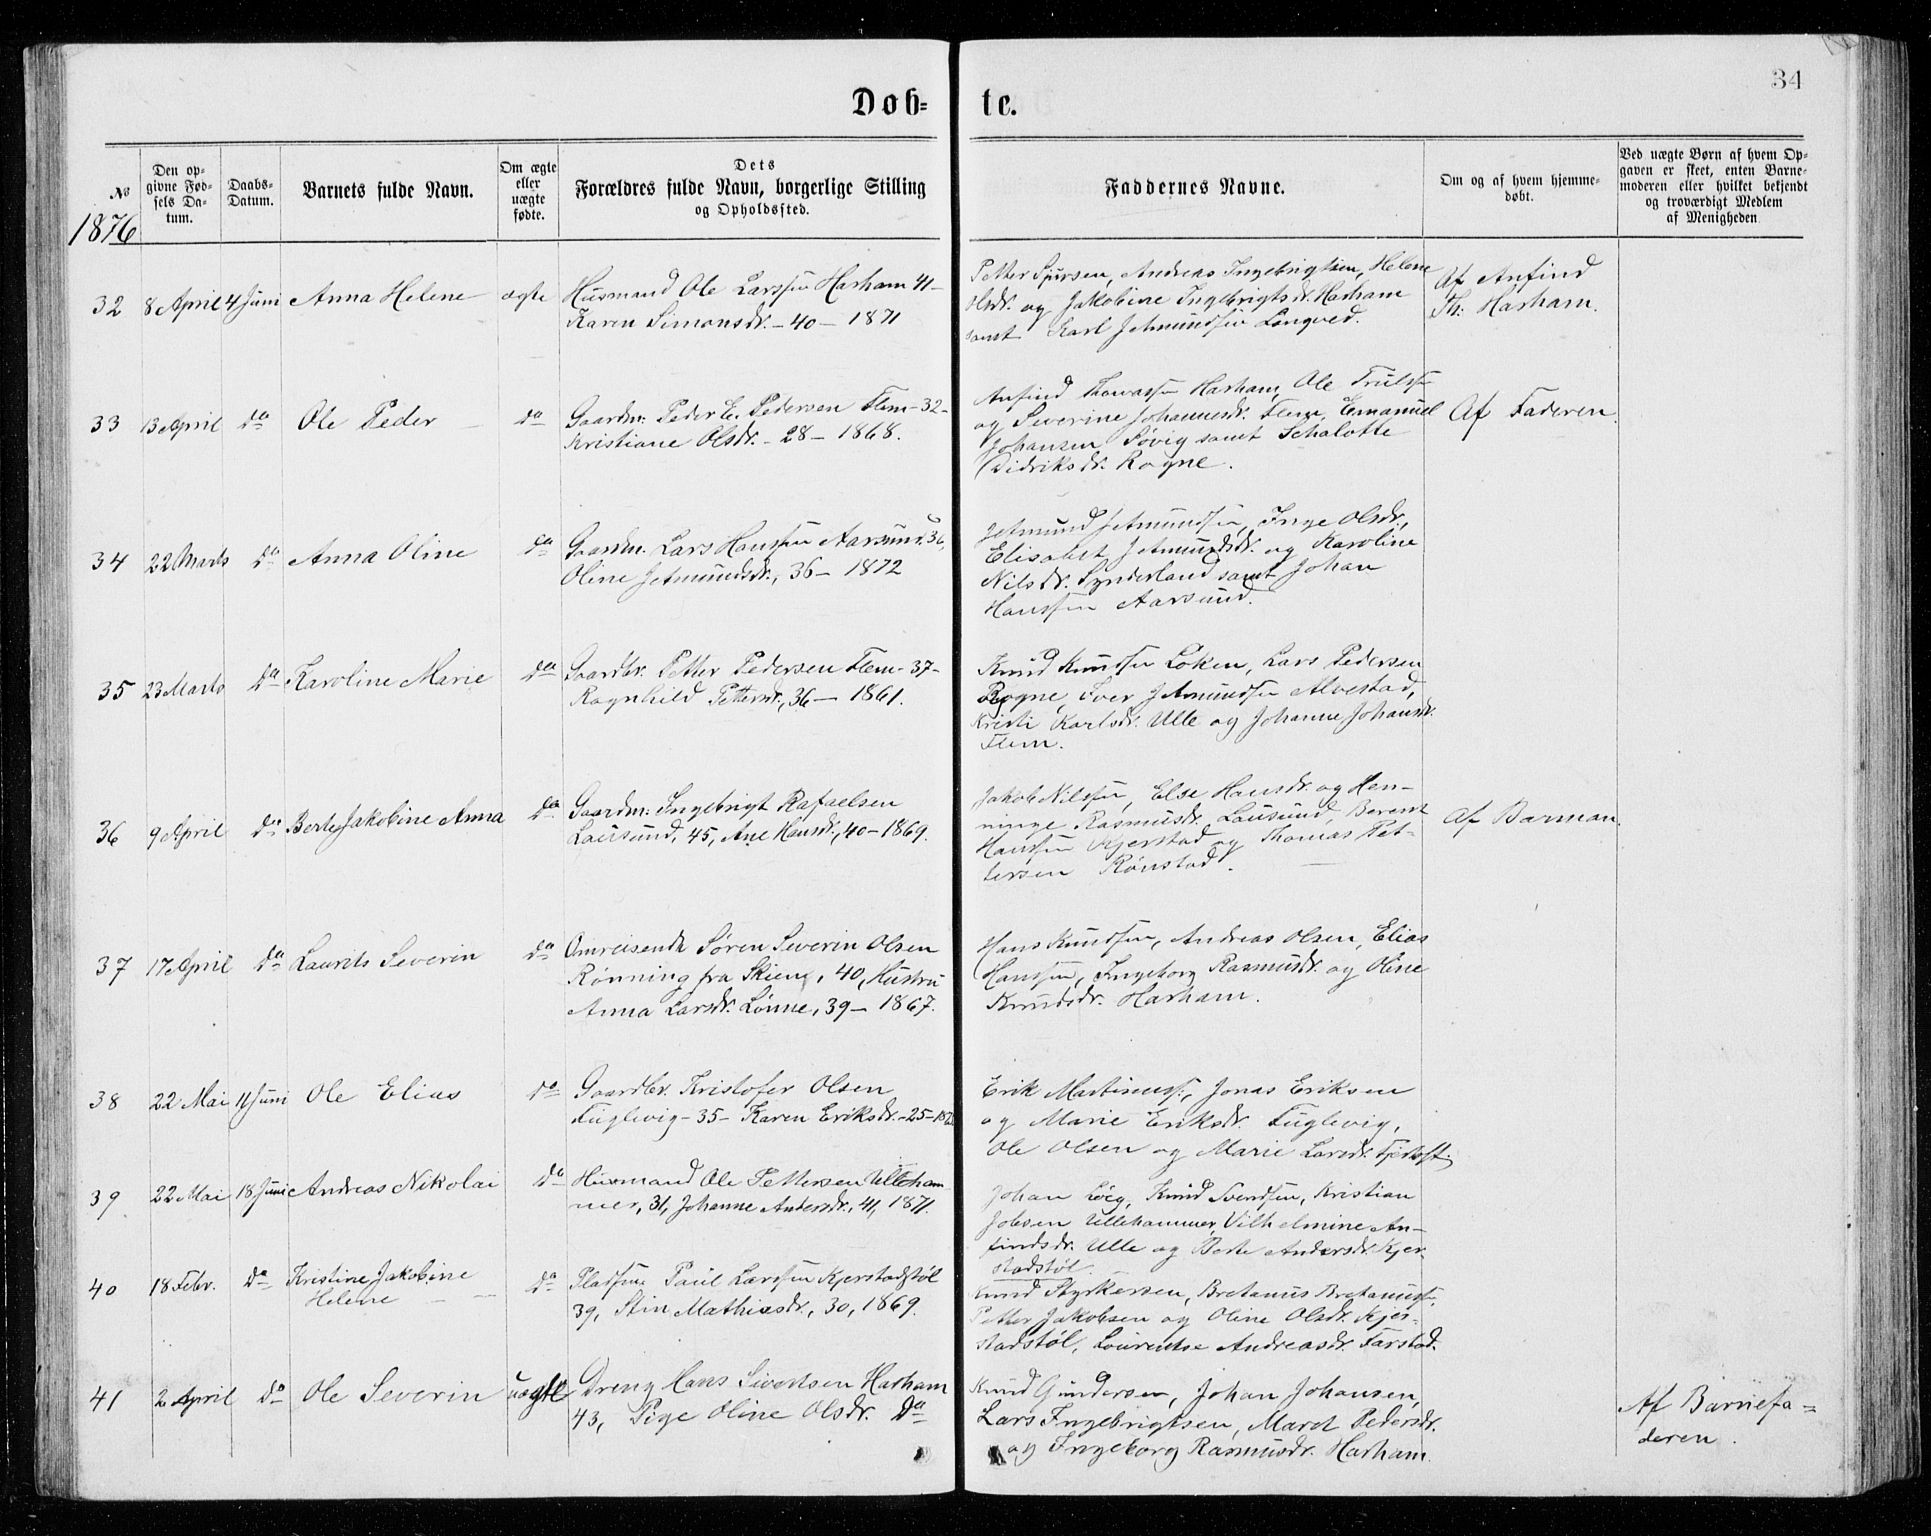 34
Døb= te.
№
Den op=
givne Fød=
sels Da=
tum.
Daabs=
Datum.
Barnets fulde Navn.
Om ægte
eller
uægte
fødte.
Dets
Forældres fulde Navn, borgerlige Stilling
og Opholdssted.
Faddernes Navne.
Om og af hvem hjemme=
døbt.
Ved uægte Børn af hvem Op=
gaven er skeet, enten Barne=
moderen eller hvilket bekjendt
og troværdigt Medlem
af Menigheden
1876
32 8 April 4 Juni Anna Helene ægte
Husmand Ole Larssen Harham 41 –
Karen Simonsdr. – 40 – 1871
Petter Sjursen, Andreas Ingebrigtsen, Helene
Olsdr. og Jakobine Ingebrigtsdr. Harham
samt Karl Jetmundsen Longved.
Af Anfind
Th: Harham.
33 13 April do Ole Peder do
Gaardm: Peder E. Pedersen Flem – 32 –
Kristiane Olsdr. – 28 – 1868.
Anfind Thomassen Harham, Ole Trulssen
og Severine Johannesdr. Flem, Emanuel
Johansen Søvig samt Schalotte
Didriksdr. Rogne.
Af Faderen.
34 22 Marts do Anna Oline do
Gaardm. Lars Hanssen Aarsund. 36,
Oline Jetmundsdr., 36 – 1872
Jetmund Jetmundsen, Inge Olsdr.,
Elisabet Jetmundsdr. og Karoline
Nilsdr. Synderland samt Johan
Hanssen Aarsund.
35 23 Marts do Karoline Marie do
Gaardbr. Petter Pedersen Flem – 37 –
Ragnhild Pettersdr., 36 – 1861.
Knud Knudsen Løken, Lars Pedersen
Rogne, Iver Jetmundsen Alvestad,
Kristi Karlsdr. Ulle og Johanne Johansdr.
Flem.
36 9 April do Berte Jakobine Anna do
Gaardm: Ingebrigt Rafaelsen
Lausund, 45, Ane Hansdr., 40 – 1869.
Jakob Nilssen, Else Hansdr. og Hen–
ninge Rasmusdr. Lausund, Berent
Hanssen Kjerstad og Thomas Pet–
tersen Rønstad.
Af Barman.
37 17 April do Laurits Severin do
Omreisende Søren Severin Olsen
Rønning fra Skien, 40, Hustru
Anna Larsdr. Lønne, 39 – 1867.
Hans Knudsen, Andreas Olsen, Elias
Hanssen, Ingeborg Rasmusdr. og Oline
Knudsdr. Harham.
38 22 Mai 11 Juni Ole Elias do
Gaardbr. Kristofer Olsen
Fuglevig – 35 – Karen Eriksdr. – 25 –
Erik Martinuss., Jonas Eriksen
og Marie Eriksdr. Fuglevig,
Ole Olsen og Marie Larsdr. Fjertoft.
39 22 Mai 18 Juni Andreas Nikolai do
Husmand Ole Pettersen Ulleham–
mer, 31, Johanne Andersdr., 41, 1871.
Johan Løeg, Knud Svendsen, Kristian
Jobsen Ullehammer, Vilhelmine An–
findsdr. Ulle og Berte Andersdr. Kjer–
stadstøl.
40 18 Febr. do Kristine Jakobine
Helene – – do
Pladsm. Paul Larssen Kjerstadstøl
39, Stin Mathiasdr., 30, 1869.
Knud Styrkersen, Bretanus Bretanussen,
Petter Jakobsen og Oline Olsdr. Kjer–
stadstøl, Laurentse Andreasdr. Farstad.
41 2 April do Ole Severin uægte
Dreng Hans Sivertsen Harham
43, Pige Oline Olsdr. do
Knud Gundersen, Johan Johansen,
Lars Ingebrigtsen, Maret Pedersdr.
og Ingeborg Rasmusdr. Harham.
Af Barnefa=
deren.